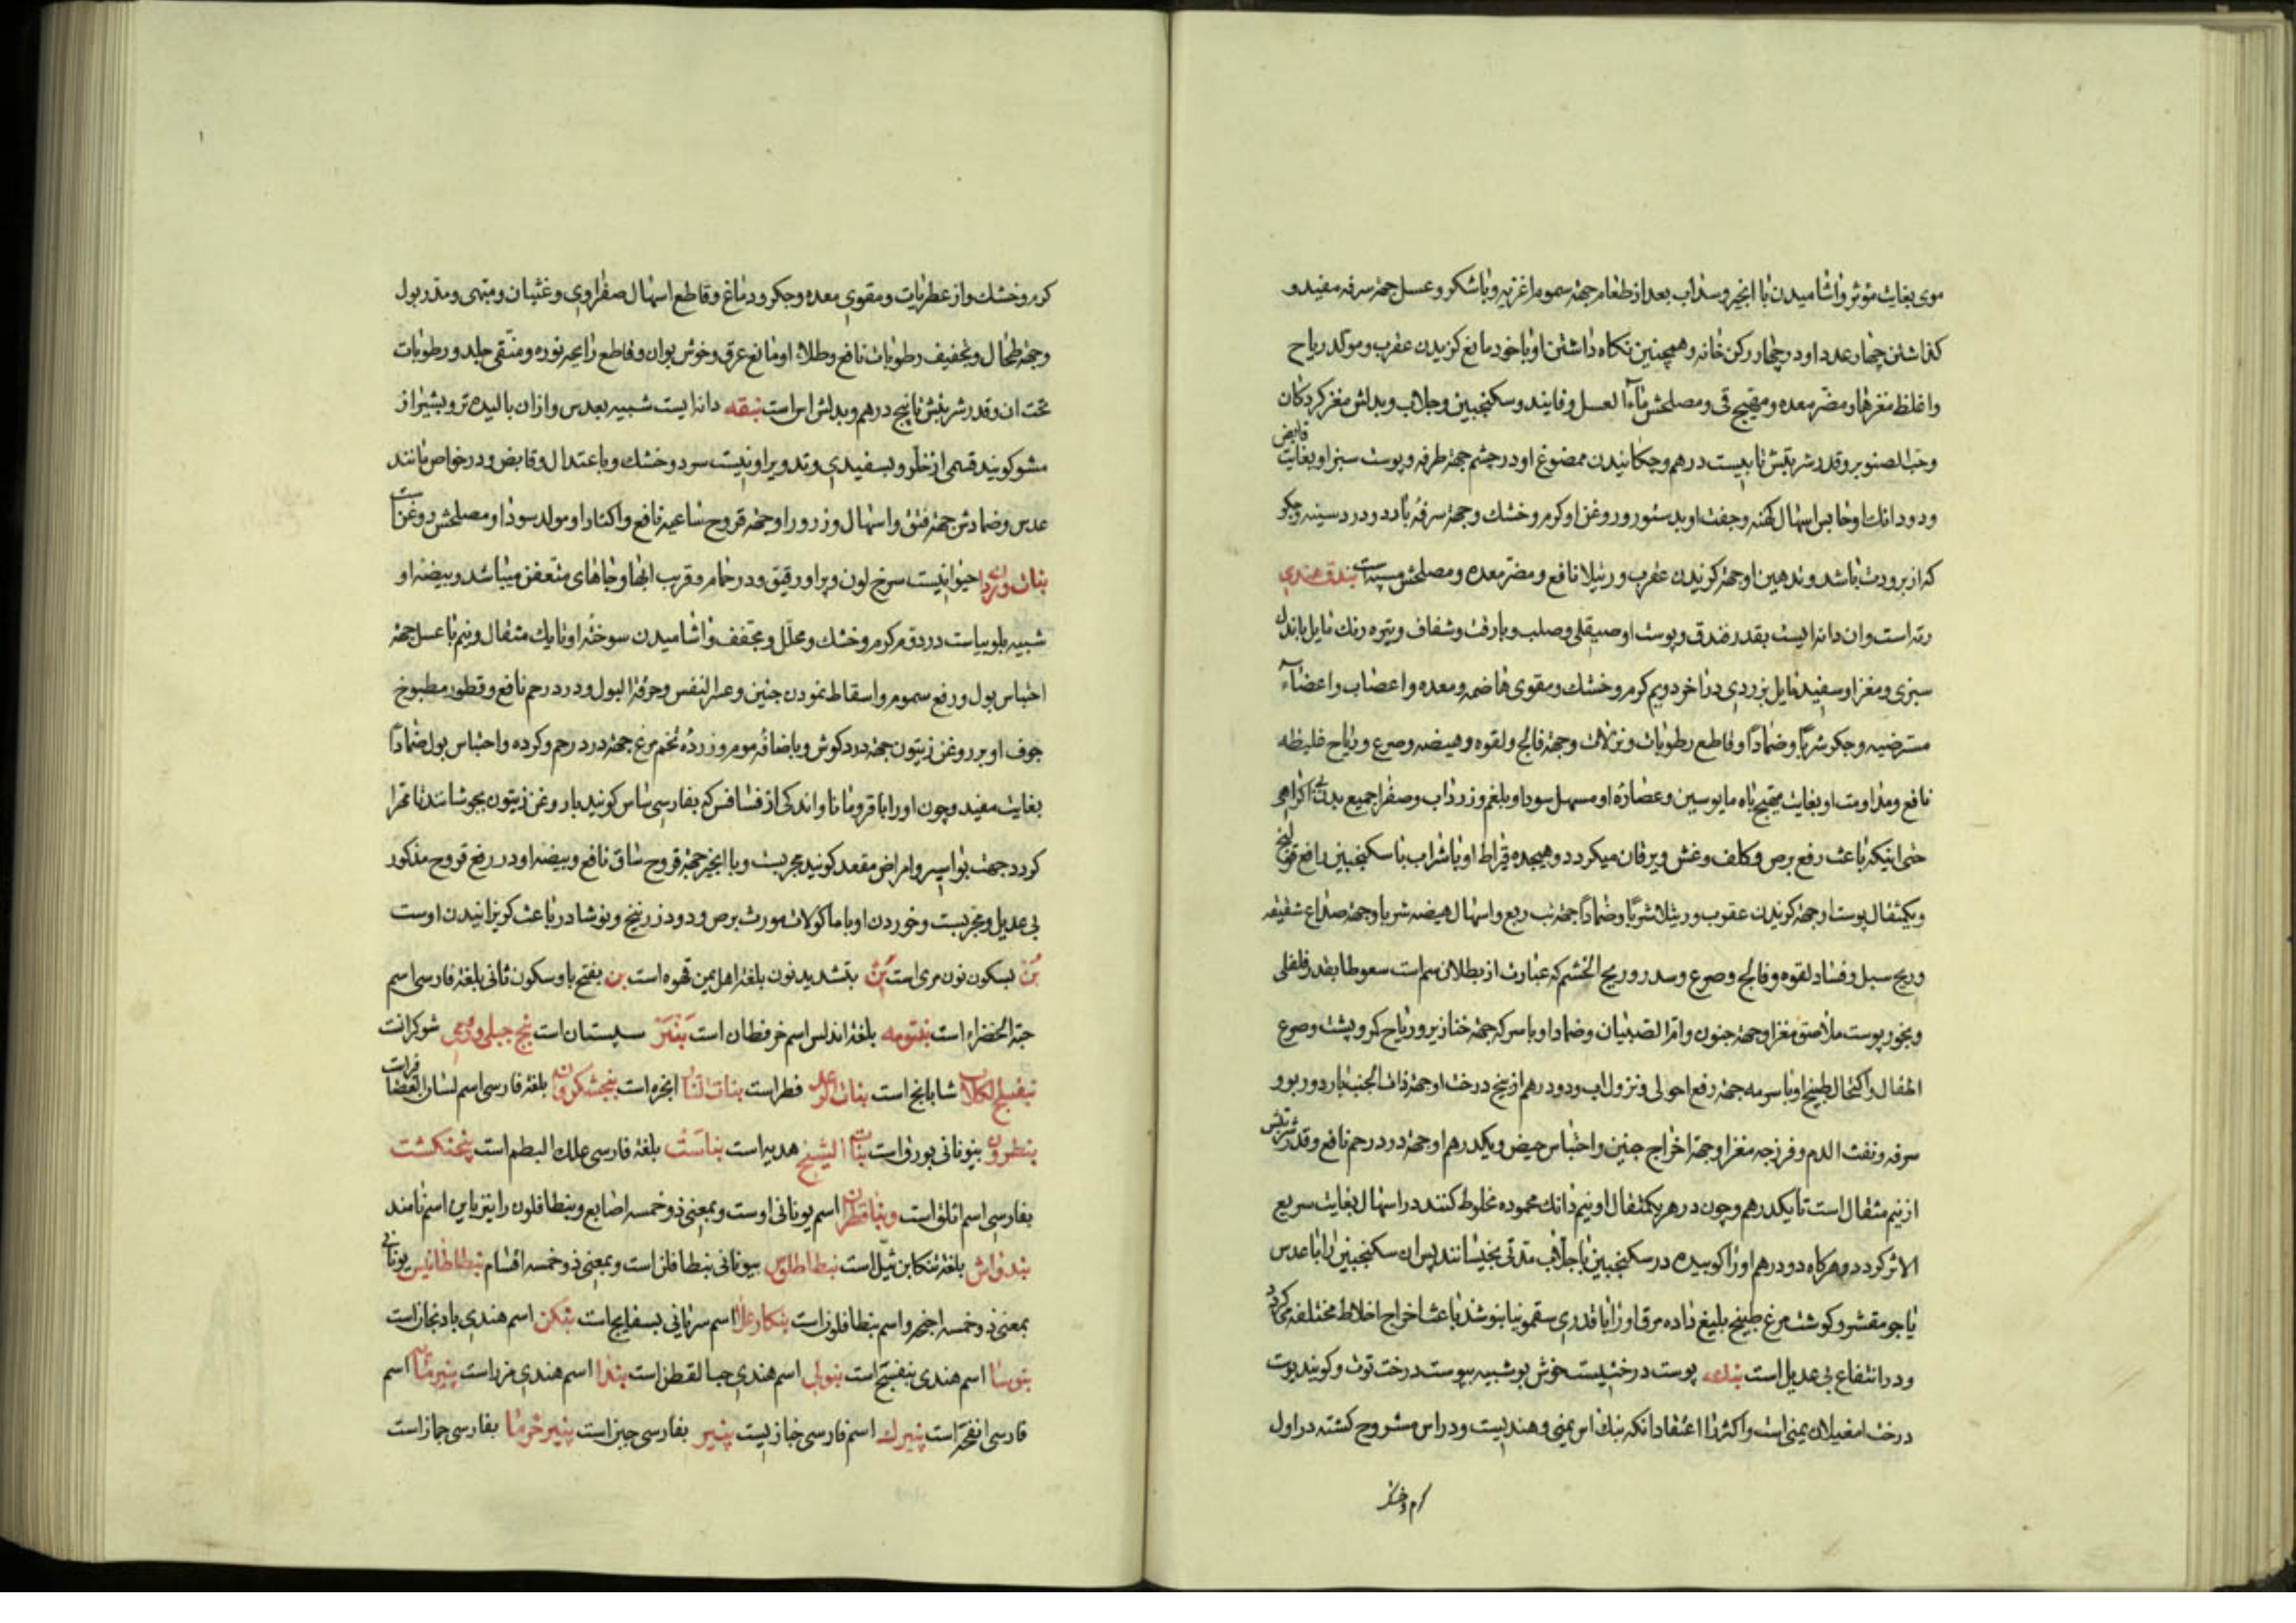 موی بغایت مؤثر و آشامیدن با انجیر و سداب بعد از طعام جهة سموم اغزیه و با شکر و عسل جهة سرفه مفید و
کذاشتن چهار عدد او در چهار رکن خانه و همچنین نکاه داشتن او با خود مانع کزیدن عقرب و مولد ریاح
و اغلظ مغزها و مضر معده و مهیج قی و مصلحش ماء العسل و فانیذ و سکنجبین و جلاب و بدلش مغز کردکان
و حب الصنوبر و قدر شربتش تا بیست درهم و چکانیدن ممضوغ او در چشم جهة طرفه و پوست سبز او بغایت قابض
و دو دانک او حابس اسهال کهنه و جفت او بدستور و روغن او کرم و خشک و جهة سرفه بارد و درد سینه و جکر
که از برودت باشد و تدهین او جهة کزیدن عقرب و رتیلا نافع و مضر معده و مصلحش بندق هندی
رته است و ان دانه ایست بقدر فندق و پوست او صیقلی و صلب و با رقت و شفاف و تیره رنک مایل باندک
سبزی و مغز او سفید مایل بزردی در آخر دویم کرم و خشک و مقوی هاضمه و معده و اعصاب و اعضاء
مسترخیه و جکر شربا و ضمادا و قاطع رطوبات و نزلات و جهة فالج و لقوه و هیضه و صرع و ریاح غلیظه
نافع و مداومت او بغایت مهیج باه مایوسین و عصاره او مسهل سودا و بلغم و زرداب و صفرا جمیع بدن بی اکراهی
حتی اینکه باعث رفع برص و کلف و غش و یرقان میکردد و هیجده قیراط او با شراب یا سکنجبین رافع قولنج
و یکمثقال پوست او جهة کزیدن عقرب و رتیلا شربا و ضمادا جهة تب ربع و اسهال هیضه شربا و جهة صداع شقیقه
و ریح سبل و فساد لقوه و فالج و صرع و سدر و ریح الخشم که عبارت از بطلان شم است سعوطا بقدر فلفلی
و بخور پوست ملاصق مغز او جهة جنون و ام الصبیان و ضماد او با سرکه جهة خنازیر و ریاح کر و پشت و صرع
اطفال و اکتحال طبیخ او با سرمه جهة رفع احولی و نزول آب و دو درهم از بیخ درخت او جهة ذات الجنب بارد و ربو و
سرفه و نفث الدم و فرزجه مغز او جهة اخراج جنین و احتباس حیض و یکدرهم او جهة درد رحم نافع و قدر شربتش
از نیم مثقال است تا یکدرهم و چون در هر یکمثقال او نیم دانک محموده مخلوط کنند در اسهال بغایت سریع
الاثر کردد و هرکاه دو درهم او را کوبیده در سکنجبین یا جلاب مدتی بخیسانند پس ان سکنجبین را با عدس
یا جو مقشر و کوشت مرغ طبیخ بلیغ داده مرق او را با قدری سقمونیا بنوشند باعث اخراج اخلاط مختلفه کردد
و در انتفاع بی عدیل است پوست درختیست خوش بو شبیه بپوست درخت توت و کویند پوست
درخت امغیلان یمنی است و اکثر را اعتقاد آنکه بنک اس یمنی و هندیست و در اس مشروح کشته در اول
کرم و خشک
کرم و خشک و از عطریات و مقوی معده و جکر و دماغ و قاطع اسهال صفراوی و غثیان و مشهی و مدر بول
و جهة طحال و تجفیف رطوبات نافع و طلاء او مانع عرق و خوش بو ان و قاطع رایحه نوره و منقی جلد و رطوبات
تحت ان و قدر شربتش تا پنج درهم و بدلش اس است بنقه دانه ایست شبیه بعدس و از ان بالیده تر و بشیراز
مشو کویند قسمی از خلر و بسفیدی و تدویر او نیست سرد و خشک و با اعتدال و قابض و در خواص مانند
عدس و ضمادش جهة فتق و اسهال و زرور او جهة قروح ساعیه نافع و اکثار او مولد سودا و مصلحش روغن
بنات وردان حیوانیست سرخ لون و پر او رقیق و در حمام و قریب ابها و جاهای متعفن میباشد و بیضه او
شبیه بلوبیاست در دوم کرم و خشک و محلل و مجفف و آشامیدن سوخته او تا یک مثقال و نیم با عسل جهة
احتباس بول و رفع سموم و اسقاط نمودن جنین و عسر النفس و حرقة البول و درد رحم نافع و قطور مطبوخ
جوف او بر روغن زیتون جهة درد کوش و با اضافه موم و زرده تخم مرغ جهة درد رحم و کرده و احتباس بول ضمادا
بغایت مفید و چون او را با قرومانا و اندکی از فسافس که بفارسی ساس کویند با روغن زیتون بجوشانند تا مهرا
کردد جهت بواسیر و امراض مقعد کویند مجربست و با انجیر جهة قروح ساق نافع و بیضه او در رفع قروح مذکور
بی عدیل و مجربست و خوردن او با ماکولات مورث برص و دود زرنیخ و نوشادر باعث کریزانیدن اوست
بن بسکون نون مری است بن بتشدید نون بلغة اهل یمن قهوه است بن بفتح با و سکون ثانی بلغة فارسی اسم
حبة الخضراء است بنتومه بلغة اندلس اسم خرفطان است بنبر سپستان است بنج جبلی و رومی شوکرانست
بنفسج الکلاب شابابج است بنات الرعد فطر است بنات النار انجره است بنجشک زوان بلغة فارسی اسم لسان العصافیر است
بنطرون بیونانی بورق است بنات الشیخ هدبه است بناست بلغة فارسی علک البطم است پنجنکشت
بفارسی اسم اثلق است و اسم یونانی اوست و بمعنی ذو خمسه اصابع و بنطافلون را نیز باین اسم نامند
بندواش بلغة تنکابن ثیل است بنطاطلوس بیونانی بنطافلن است و بمعنی ذو خمسه اقسام یونانی
بمعنی ذو خمسه اجنحه و اسم بنطافلون است اسم سریانی بسفایج است بنکن اسم هندی بادنجان است
بنوسا اسم هندی بنفسج است بنولی اسم هندی حب القطن است بندا اسم هندی مزر است پنیرمایه اسم
فارسی انفحه است پنیرک اسم فارسی خبازیست پنیر بفارسی جبن است پنیر خرما بفارسی جمار است